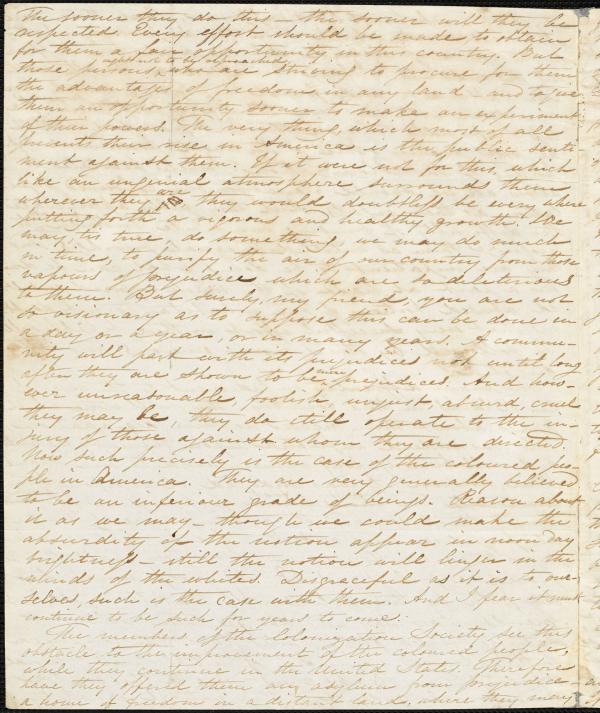 The sooner they do this – the sooner will they be
respected. Every effort should be made to obtain
for them a fair opportunity in this country. But
ought not to be reproached
those persons who are striving to procure for them
the advantages of freedom in any land – and to give
them an opportunity sooner to make an experiment
of their powers. The very thing, which most of all
prevents their rise in America is the public senti-
ment against them. If it were not for this, which
like an ungenial atmosphere surrounds them
wherever they are they would doubtless be every where
putting forth a vigorous and healthy growth. We
may, tis true, do something, we may do much
in time, to purify the air of our country from those
vapours of prejudice which are so deleterious
to them. But surely, my friend, you are not
so visionary as to suppose this can be done in
a day or a year, or in many years. A commu-
nity will part with its prejudices not until long
after they are shown to be mere prejudices. And how-
ever unreasonable, foolish, unjust, absurd, cruel
they may be, they do still operate to the in-
jury of those against whom they are directed.
Now such precisely is the case of the coloured peo-
ple in America. They are very generally believed
to be an inferiour grade of beings. Reason about
it as we may – though we could make the
absurdity of the notion appear in noon day
brightness – still the notion will linger in the
minds of the whites. Disgraceful as it is to our-
selves, such is the case with them. And I fear it must
continue to be such for years to come.
The members of the Colonization Society see this
obstacle to the improvement of the coloured people,
while they continue in the United States. Therefore
have they offered them an asylum from prejudice –
a home of freedom in a distant land, where they may